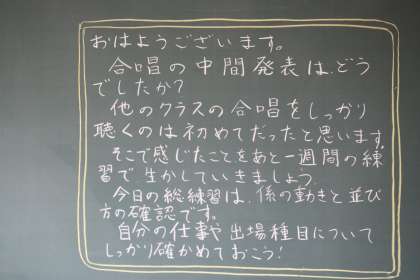 おはようございます。
合唱の中間発表は、どう
でしたか?
他のクラスの合唱をしっかり
聴くのは初めてだったと思います。
そこで感じたことをあと一週間の練
習で生かしていきましょう。
今日の総練習は、係の動きと並び
方の確認です。
自分の仕事や出場種目について
しっかり確かめておこう!